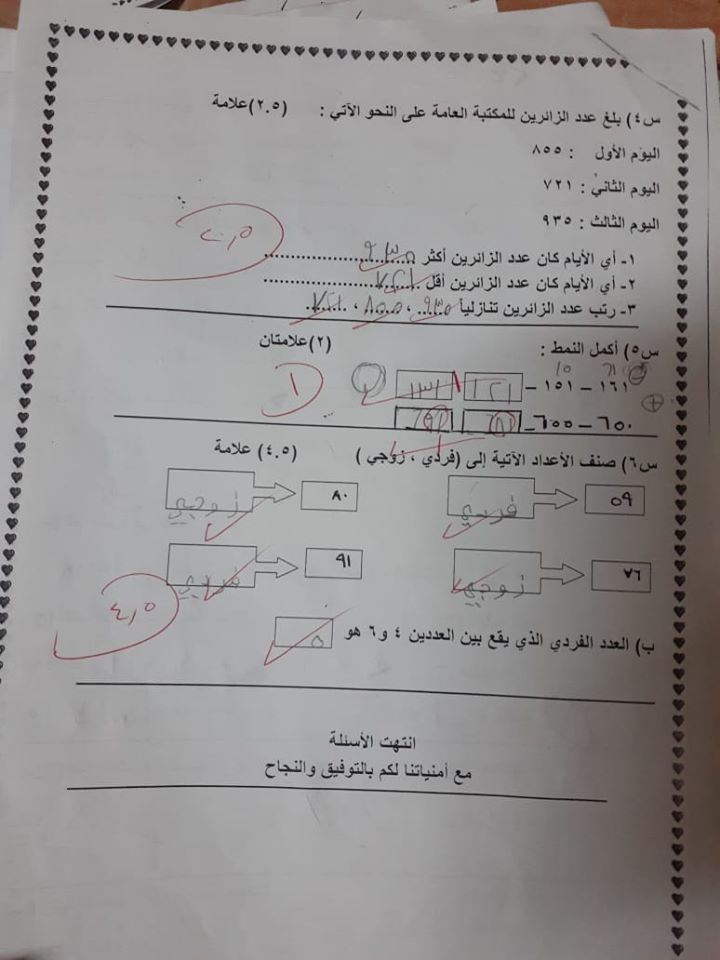 س٤) بلغ عدد الزائرين للمكتبة العامة على النحو الآتي : (٢.٥)علامة
اليوم الأول : ٨٥٥
اليوم الثاني : ٧٢١
اليوم الثالث : ٩٣٥
٢,٥
١- أي الأيام كان عدد الزائرين أكثر ٩٣٥
٢- أي الأيام كان عدد الزائرين أقل ٧٢١
٣- رتب عدد الزائرين تنازلياً ٩٣٥ ، ٨٥٥ ، ٧٢١
س٥) أكمل النمط : (٢)علامتان
١٦١ – ١٥١ – ١٢١ ١٣١
١
٦٥٠ – ٦٠٠ –
س٦) صنف الأعداد الآتية إلى (فردي ، زوجي ) (٤.٥) علامة
٥٩ فردي ٨٠ زوجي
٧٦ زوجي ٩١ فردي
٤,٥
ب) العدد الفردي الذي يقع بين العددين ٤ و ٦ هو ٥
انتهت الأسئلة
مع أمنياتنا لكم بالتوفيق والنجاح